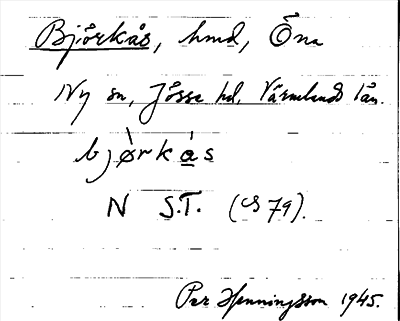 Björkås, hmd, Öna
Ny sn, Jösse hd, Värmlands län.
bjø̀rkás
N S.T. (S 79).
Per Henningsson 1945.